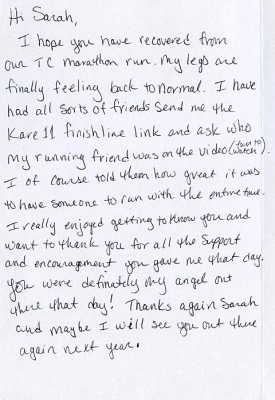 Hi Sarah,
I hope you have recovered from
our TC marathon run. My legs are
finally feeling back to normal. I have
had all sorts of friends send me the
Kare 11 finish line link and ask who
my running friend was on the video (fun to watch).
I of course told them how great it was
to have someone to run with the entire time.
I really enjoyed getting to know you and
want to thank you for all the support
and encouragement you gave me that day.
You were definately my angel out
there that day! Thanks again Sarah
and maybe I will see you out there
again next year.